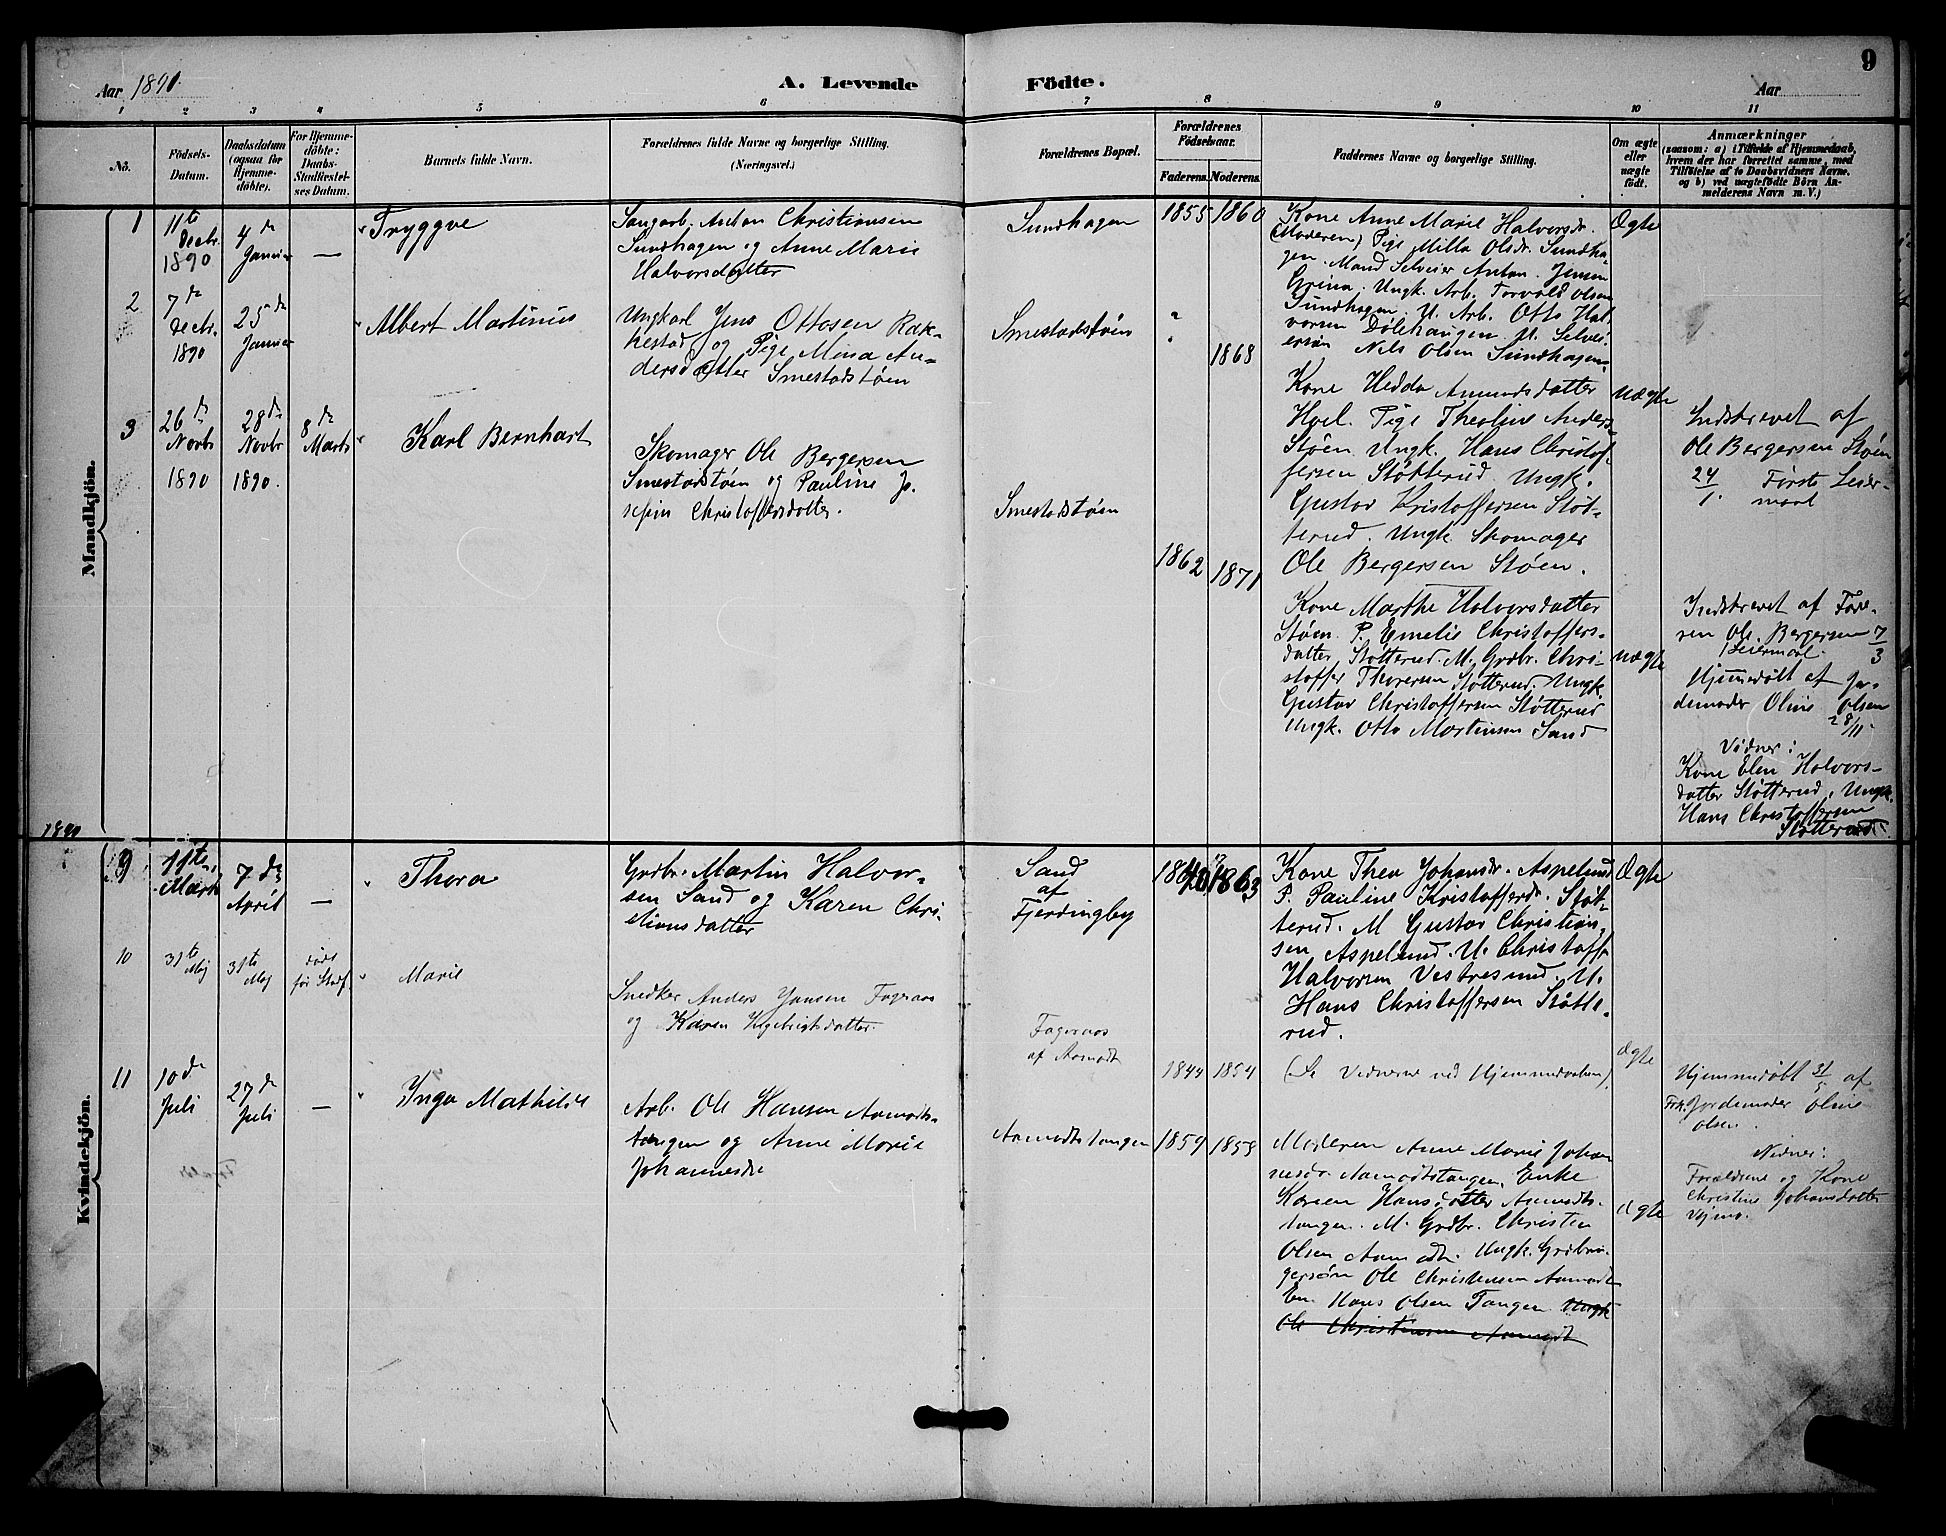 Aar 1891.
A. Levende Födte.
Aar
9
1 2 3 4 5 6 7 8 9 10 11
No.
Födsels-
Datum.
Daabsdatum
(ogsaa for
Hjemme-
döbte).
For Hjemme-
döbte:
Daabs-
Stadfæstel-
ses Datum.
Barnets fulde Navn.
Forældrenes fulde Navne og borgerlige Stilling.
(Næringsvei.)
Forældrenes Bopæl.
Forældrenes
Födselsaar.
Faderens. Moderens.
Faddernes Navne og borgerlige Stilling.
Om ægte
eller
uægte
födt.
Anmærkninger
(saasom: a) i Tilfælde af Hjemmedaab,
hvem der har forrettet samme, med
Tilföielse af to Daabsvidners Navne.
og b) ved uægtefödte Börn An-
melderens Navn m. V.)
Mandkjön.
1
11te
Decbr.
1890
4de
Januar
—
Tryggve
Saugarb. Anton Christiansen
Sundhagen og Anne Marie
Halvorsdatter
Sundhagen
1855 1860
Kone Anne Marie Halvorsdr.
(Moderen) Pige Milla Olsdr. Sundha-
gen. Mand Selveier Anton Jensen
Grina. Ungk. Arb. Torvald Olsen
Sundhagen. U. Arb. Otto Hal-
vorsen Dølehaugen U. Selvei-
ersøn Nils Olsen Sundhagen
Ægte
2
7de
Decbr.
1890
25de
Januar
Albert Martinius
Ungkarl Jens Ottosen Rak-
kestad og Pige Mina An-
dersdatter Smestadstøen
Smestadstøen
"
1868
Kone Hedda Amundsdatter
Hoel. Pige Theoline Anders.
Støen Ungk. Hans Christof-
fersen Støtterud Ungk.
Gustav Kristoffersen Støt-
terud. Ungk. Skomager
Ole Bergersen Støen.
Uægte
Indskrevet af
Ole Bergersen Støen
24/1. Første Leier-
maal
3
26de
Novbr
1890
28de
Novbr
1890.
8de
Marts
Karl Bernhart
Skomager Ole Bergersen
Smestadstøen og Pauline Jo-
sefin Christoffersdatter.
Smestadstøen
1862 1871
Kone Marthe Halvorsdatter
Støen. P. Emelie Christoffers-
datter Støtterud. M. Grdbr. Chri-
stoffer Thorersen Støtterud. Ungk.
Gustav Christoffersen Støtterud
Ungk. Otto Martinsen Sand
Uægte
Indskrevet af Fare-
ren Ole Bergersen 7/3
Leiermaal.
Hjemmedøbt af Jor-
demoder Oline Olsen
28/11.
Vidner:
Kone Elen Halvors-
datter Støtterud, Ungk.
Hans Christoffersen
Støtterud.
1891
Kvindekjön.
9
11te
Marts
7de
April
—
Thora
Grdbr. Martin Halvor-
sen Sand og Karen Chri-
stiansdatter
Sand
af
Fjerdingby
1863
Kone Thea Johansdr. Aspelund
P. Pauline Kristofferdr. Støt-
terud. M Gustav Christian-
sen Aspelund. U. Christoffr
Halvorsen Vestresund. U.
Hans Christoffersen Støtte-
rud.
Ægte
10
31te
Maj
31te
Maj
døde
før Stadf.
Marie
Snedker Anders Jansen Fageraas
og Karen Ingebrigtsdatter.
Fageraas
af Aamodt
1844 1854
(Se Vidnerne ved Hjemmedaaben)
Ægte
Hjemmedøbt 31/5 af
Frk. Jordemoder Oline
Olsen.
Vidner:
Forældrene og Kone
Christine Johansdatter
11
10de
Juli
27de
Juli
—
Inga Mathilde
Arb. Ole Hansen Aamodts-
tangen og Anne Marie
Johannesdr
Aamodtstangen
1859 1858
Moderen Anne Marie Johan
nesdr Aamodtstangen, Enke
Karen Hansdatter Aamodts-
tangen. M. Grdbr. Christen
Olsen Aamodt. Ungk. Grdbru-
gersøn Ole Christensen Aamodt
Em. Hans Olsen Tangen Ungk
Ole Christensen Aamodt
Ægte